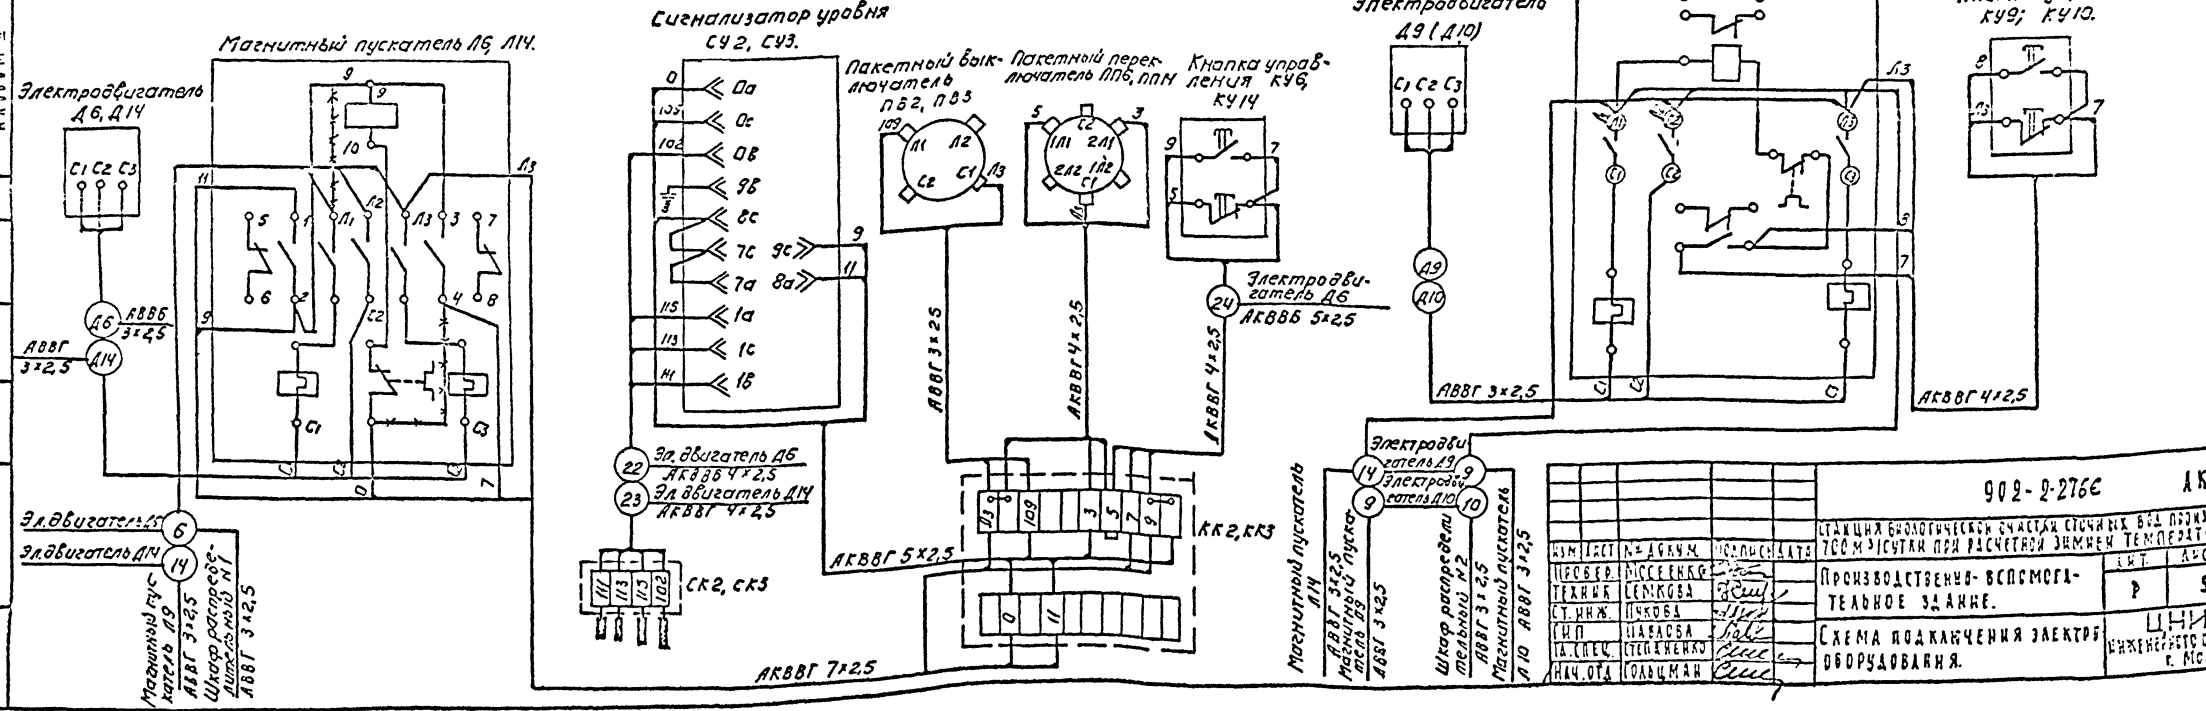 Магнитный пускатель Л6, Л14.
Электродвигатель
Д6, Д14
С1 С2 С3
9
9
10
11
Л3
5
1
Л1
Л2
Л3
3
7
6
2
С2
4
8
9
Д6
АВВБ
3×2,5
АВВГ
3×2,5
Д14
С1
С3
С1
С2
0
С3
7
6
Эл.двигатель Д14
14
Магнитный пус-
катель Л9
АВВГ 3×2,5
Шкаф распреде-
лительный №1
АВВГ 3×2,5
Сигнализатор уровня
СУ2, СУ3.
0
0а
109
0с
102
0в
9в
8с
7с
9с
9
7а
8а
11
115
1а
113
1с
111
1в
22
Эл.двигатель Д6
АКВВБ 4×2,5
23
Эл.двигатель Д14
АКВВГ 4×2,5
111
113
115
102
СК2, СК3
Пакетный вык-
лючатель
ПВ2, ПВ3
109
Л1
Л2
С2
С1
Л3
АВВГ 3×2,5
Пакетный перек-
лючатель ПП6, ПП14
5
С2
3
1Л1
2Л1
2Л2
1Л2
С1
Л3
АКВВГ 4×2,5
Кнопка управ-
ления КУ6,
КУ14
9
7
5
24
Электродви-
гатель Д6
АКВВБ 5×2,5
АКВВГ 4×2,5
Л3
109
3
5
7
9
КК2, КК3
АКВВГ 5×2,5
0
11
АКВВГ 7×2,5
Электродвигатель
Д9 (Д10)
С1 С2 С3
Д9
Д10
АВВГ 3×2,5
Л1
Л2
Л3
Л3
С1
С2
С3
3
7
С1
С2
С3
АКВВГ 4×2,5
КУ9; КУ10.
8
Л3
7
Электродви-
гатель Д9
14
9
Электродви-
гатель Д10
9
10
Магнитный пускатель
Л14
АВВГ 3×2,5
Магнитный пуска-
тель Л9
АВВГ 3×2,5
Шкаф распредели-
тельный №2
АВВГ 3×2,5
Магнитный пускатель
Л10 АВВГ 3×2,5
902-2-276с
АК
СТАНЦИЯ БИОЛОГИЧЕСКОЙ ОЧИСТКИ СТОЧНЫХ ВОД
700 М³/СУТКИ ПРИ РАСЧЕТНОЙ ЗИМНЕЙ ТЕМПЕРАТ
ИЗМ ЛИСТ № ДОКУМ ПОДПИСЬ ДАТА
ПРОВЕР. МОСЕЕНКО
ТЕХНИК СЕМКОВА
СТ.ИНЖ. ПУКОВА
ГИП ПАВЛОВА
ГЛ.СПЕЦ. СТЕПАНЕНКО
НАЧ.ОТД ГОЛЬЦМАН
ПРОИЗВОДСТВЕННО-ВСПОМОГА-
ТЕЛЬНОЕ ЗДАНИЕ.
ЛИТ.
Р
СХЕМА ПОДКЛЮЧЕНИЯ ЭЛЕКТРО
ОБОРУДОВАНИЯ.
ЦНИ
ИНЖЕНЕРНОГО
г. Мо